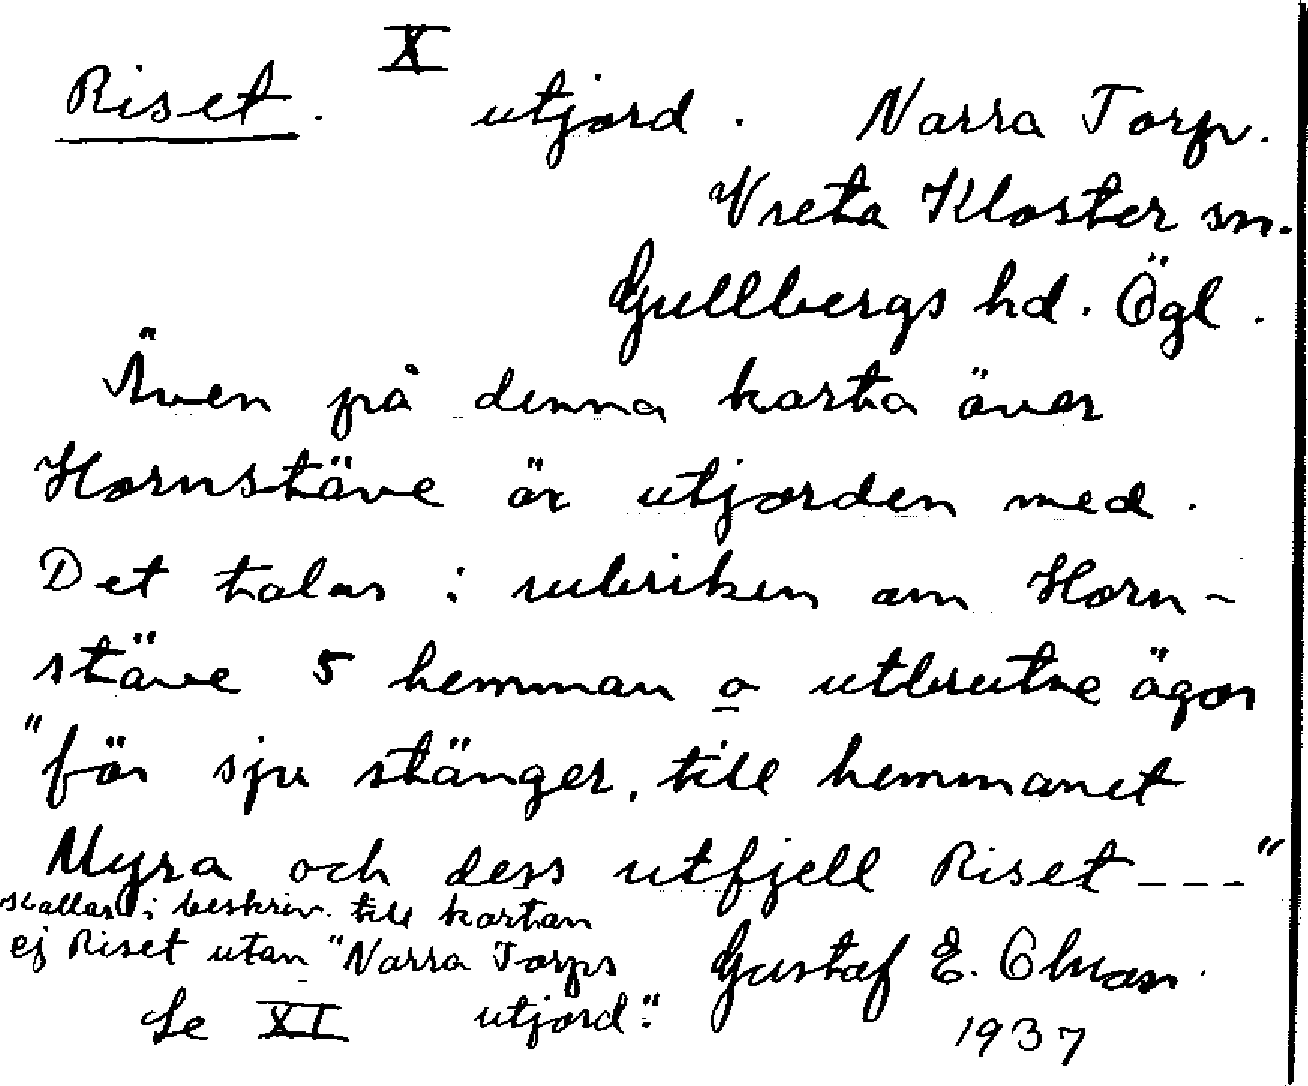 X
Riset. utjord. Narra Torp.
Vreta Kloster sn.
Gullbergs hd. Ögl.
Även på denna karta över
Hornstäve är utjorden med.
Det talas i rubriken om Horn-
stäve 5 hemman o utbrutne ägor
"för sju stänger, till hemmanet
Myra och dess utfjell Riset---"
kallas i beskriv. till kartan
ej Riset utan "Narra Torps
utjord".
Gustaf E. Olsson.
Se XI
1937